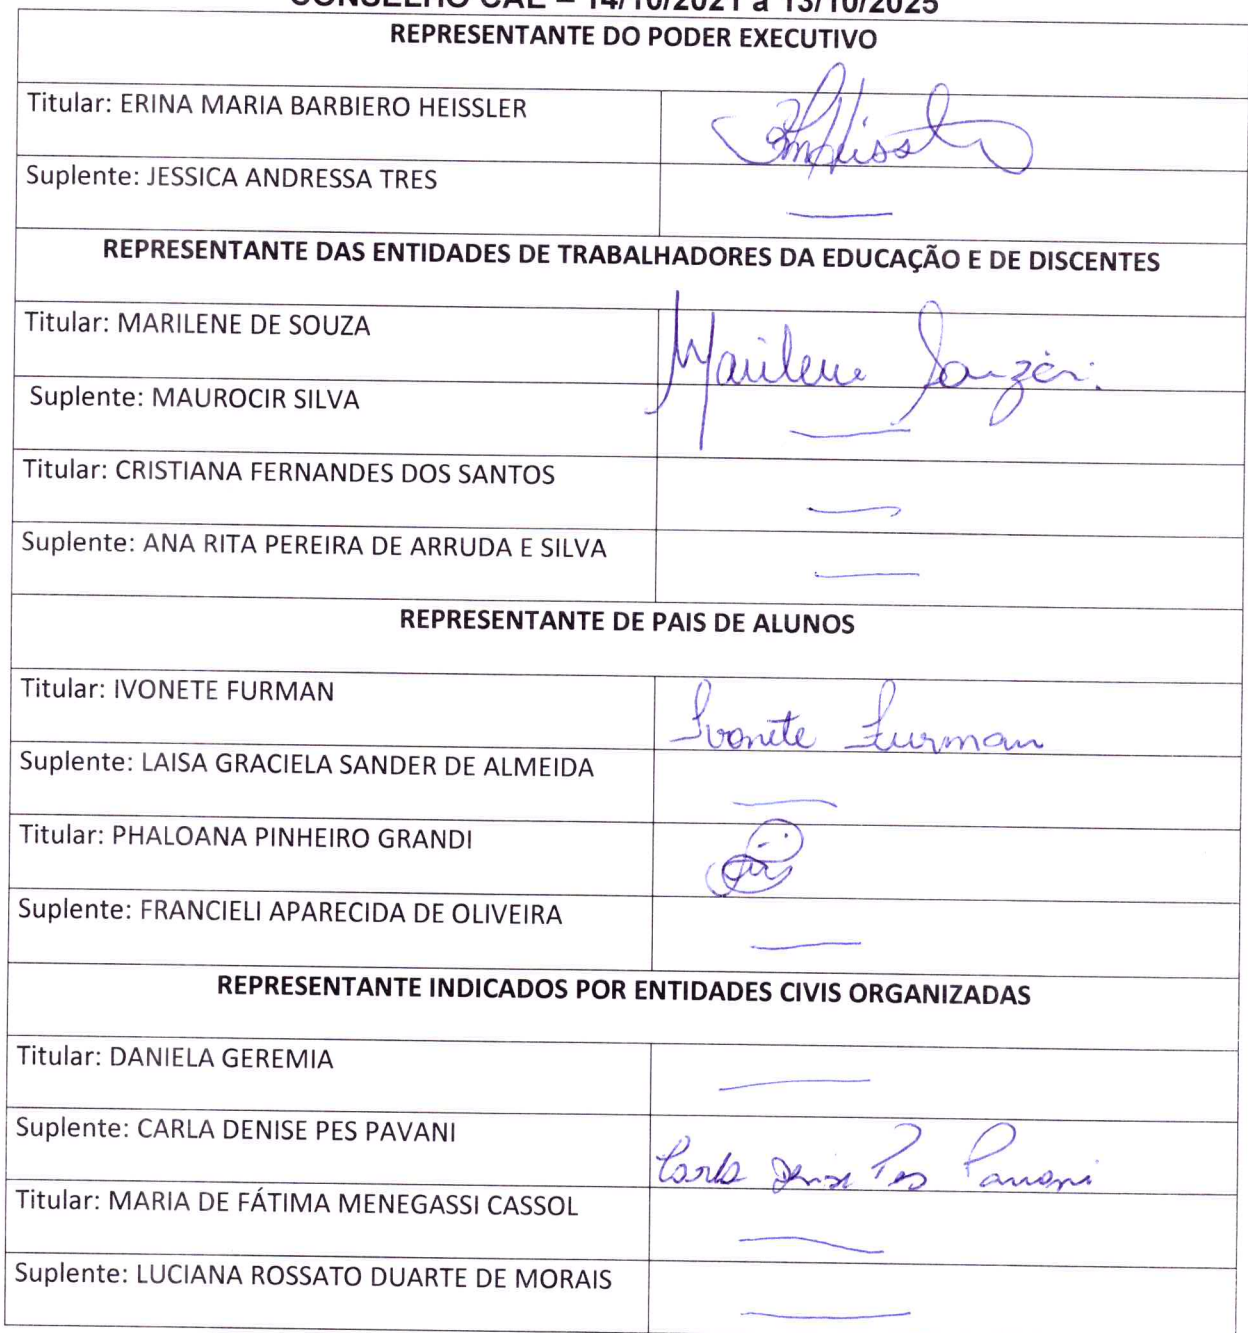 CONSELHO CAE – 14/10/2021 a 13/10/2025
REPRESENTANTE DO PODER EXECUTIVO
Titular: ERINA MARIA BARBIERO HEISSLER
Suplente: JESSICA ANDRESSA TRES
REPRESENTANTE DAS ENTIDADES DE TRABALHADORES DA EDUCAÇÃO E DE DISCENTES
Titular: MARILENE DE SOUZA
Marilene Souza
Suplente: MAUROCIR SILVA
Titular: CRISTIANA FERNANDES DOS SANTOS
Suplente: ANA RITA PEREIRA DE ARRUDA E SILVA
REPRESENTANTE DE PAIS DE ALUNOS
Titular: IVONETE FURMAN
Ivonete Furman
Suplente: LAISA GRACIELA SANDER DE ALMEIDA
Titular: PHALOANA PINHEIRO GRANDI
Suplente: FRANCIELI APARECIDA DE OLIVEIRA
REPRESENTANTE INDICADOS POR ENTIDADES CIVIS ORGANIZADAS
Titular: DANIELA GEREMIA
Suplente: CARLA DENISE PES PAVANI
Carla Denise Pes Pavani
Titular: MARIA DE FÁTIMA MENEGASSI CASSOL
Suplente: LUCIANA ROSSATO DUARTE DE MORAIS